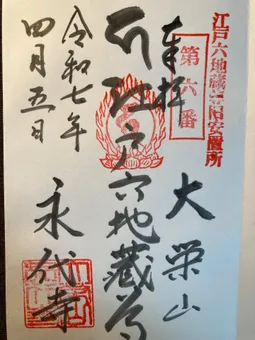 江戸六地蔵尊旧安置所
第六番
奉拝
大栄山
江戸六地蔵尊
永代寺
令和七年
四月五日